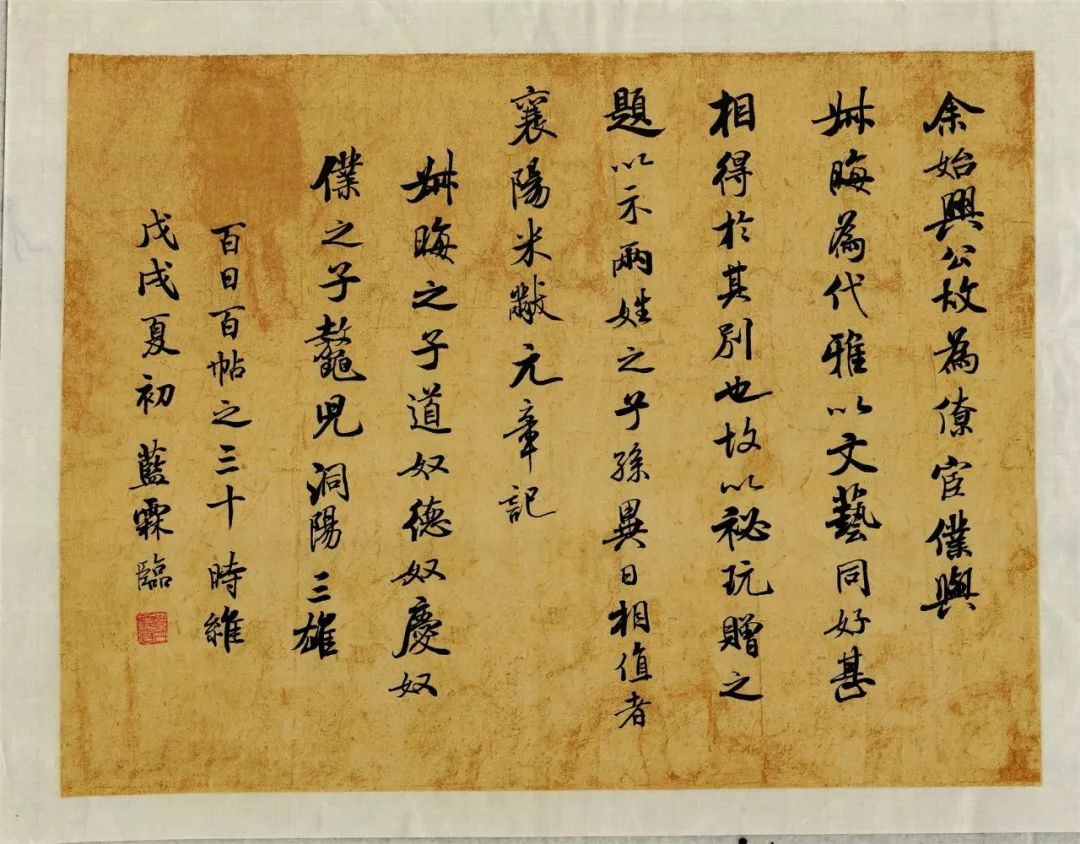 余始興公故為僚宦僕與
叔晦為代雅以文藝同好甚
相得於其別也故以祕玩贈之
題以示兩姓之子孫異日相值者
襄陽米黻元章記
叔晦之子道奴德奴慶奴
僕之子鼇兒洞陽三雄
百日百帖之三十時維
戊戌夏初藍霖臨